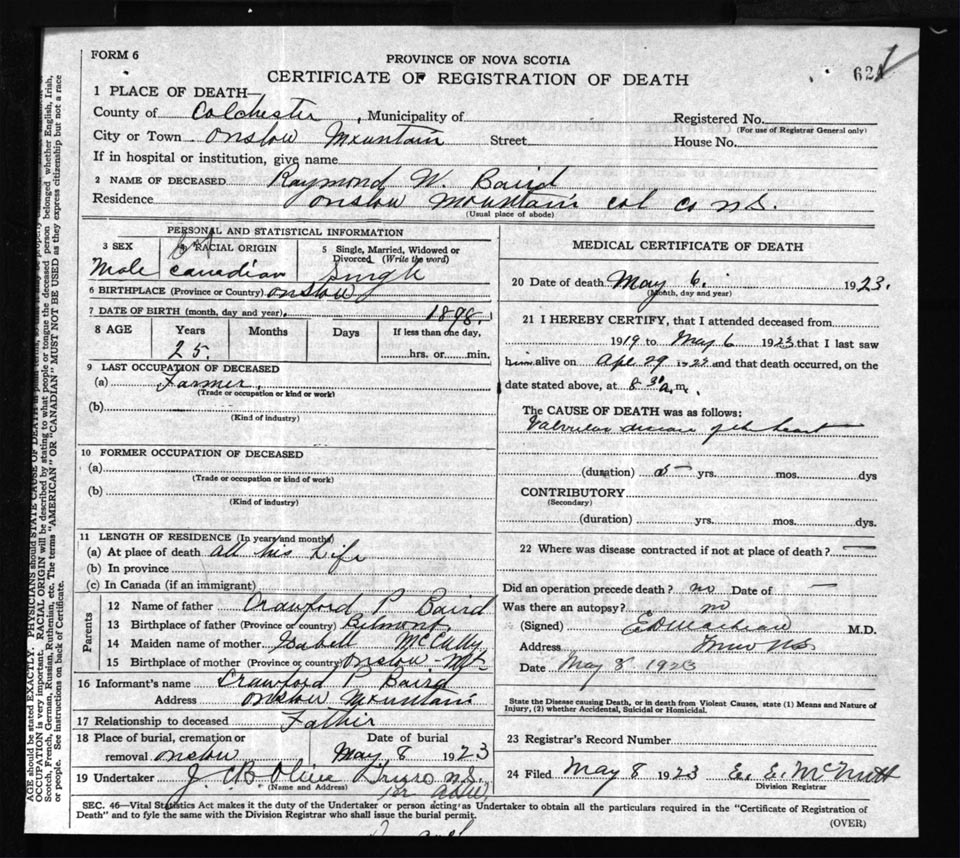 FORM 6
PROVINCE OF NOVA SCOTIA
CERTIFICATE OF REGISTRATION OF DEATH
1 PLACE OF DEATH
County of Colchester, Municipality of Registered No.
(For use of Registrar General only)
City or Town Onslow Mountain Street House No.
If in hospital or institution, give name
2 NAME OF DECEASED Raymond W. Baird
Residence Onslow Mountain Col Co N.S.
(Usual place of abode)
PERSONAL AND STATISTICAL INFORMATION
3 SEX 4 RACIAL ORIGIN 5 Single, Married, Widowed or Divorced (Write the word)
Male Canadian Single
6 BIRTHPLACE (Province or Country) Onslow
7 DATE OF BIRTH (month, day and year) 1898.
8 AGE Years Months Days If less than one day,
25. hrs. or min.
9 LAST OCCUPATION OF DECEASED
(a) Farmer
(Trade or occupation or kind of work)
(b)
(Kind of industry)
10 FORMER OCCUPATION OF DECEASED
(a)
(Trade or occupation or kind of work)
(b)
(Kind of industry)
11 LENGTH OF RESIDENCE (In years and months)
(a) At place of death All his Life
(b) In province
(c) In Canada (if an immigrant)
Parents
12 Name of father Crawford P Baird
13 Birthplace of father (Province or country) Belmont
14 Maiden name of mother Isabell McCully
15 Birthplace of mother (Province or country) Onslow Mt
16 Informant's name Crawford P Baird
Address Onslow Mountain
17 Relationship to deceased Father
18 Place of burial, cremation or removal Onslow Date of burial May 8 1923
19 Undertaker J C B Olive Truro N.S.
(Name and Address)
MEDICAL CERTIFICATE OF DEATH
20 Date of death May 6. 1923.
(Month, day and year)
21 I HEREBY CERTIFY, that I attended deceased from
1919 to May 6 1923 that I last saw
him alive on Apl 29 1923 and that death occurred, on the
date stated above, at 8 30 a.m.
The CAUSE OF DEATH was as follows:
Valvular disease of the heart
(duration) yrs. mos. dys
CONTRIBUTORY
(Secondary)
(duration) yrs. mos. dys.
22 Where was disease contracted if not at place of death?
Did an operation precede death? no Date of
Was there an autopsy? no
(Signed) M.D.
Address Truro N.S.
Date May 8 1923
State the Disease causing Death, or in death from Violent Causes, state (1) Means and Nature of
Injury, (2) whether Accidental, Suicidal or Homicidal.
23 Registrar's Record Number
24 Filed May 8 1923 E. E. McNutt
Division Registrar
SEC. 46—Vital Statistics Act makes it the duty of the Undertaker or person acting as Undertaker to obtain all the particulars required in the "Certificate of Registration of
Death" and to fyle the same with the Division Registrar who shall issue the burial permit.
(OVER)
AGE should be stated EXACTLY. PHYSICIANS should STATE CAUSE OF DEATH
OCCUPATION is very important. RACIAL ORIGIN will be described by stating to what people or tongue the deceased person belonged whether English, Irish,
Scotch, French, German, Russian, Ruthenian, etc. The terms "AMERICAN" OR "CANADIAN" MUST NOT BE USED as they express citizenship but not a race
or people. See instructions on back of Certificate.